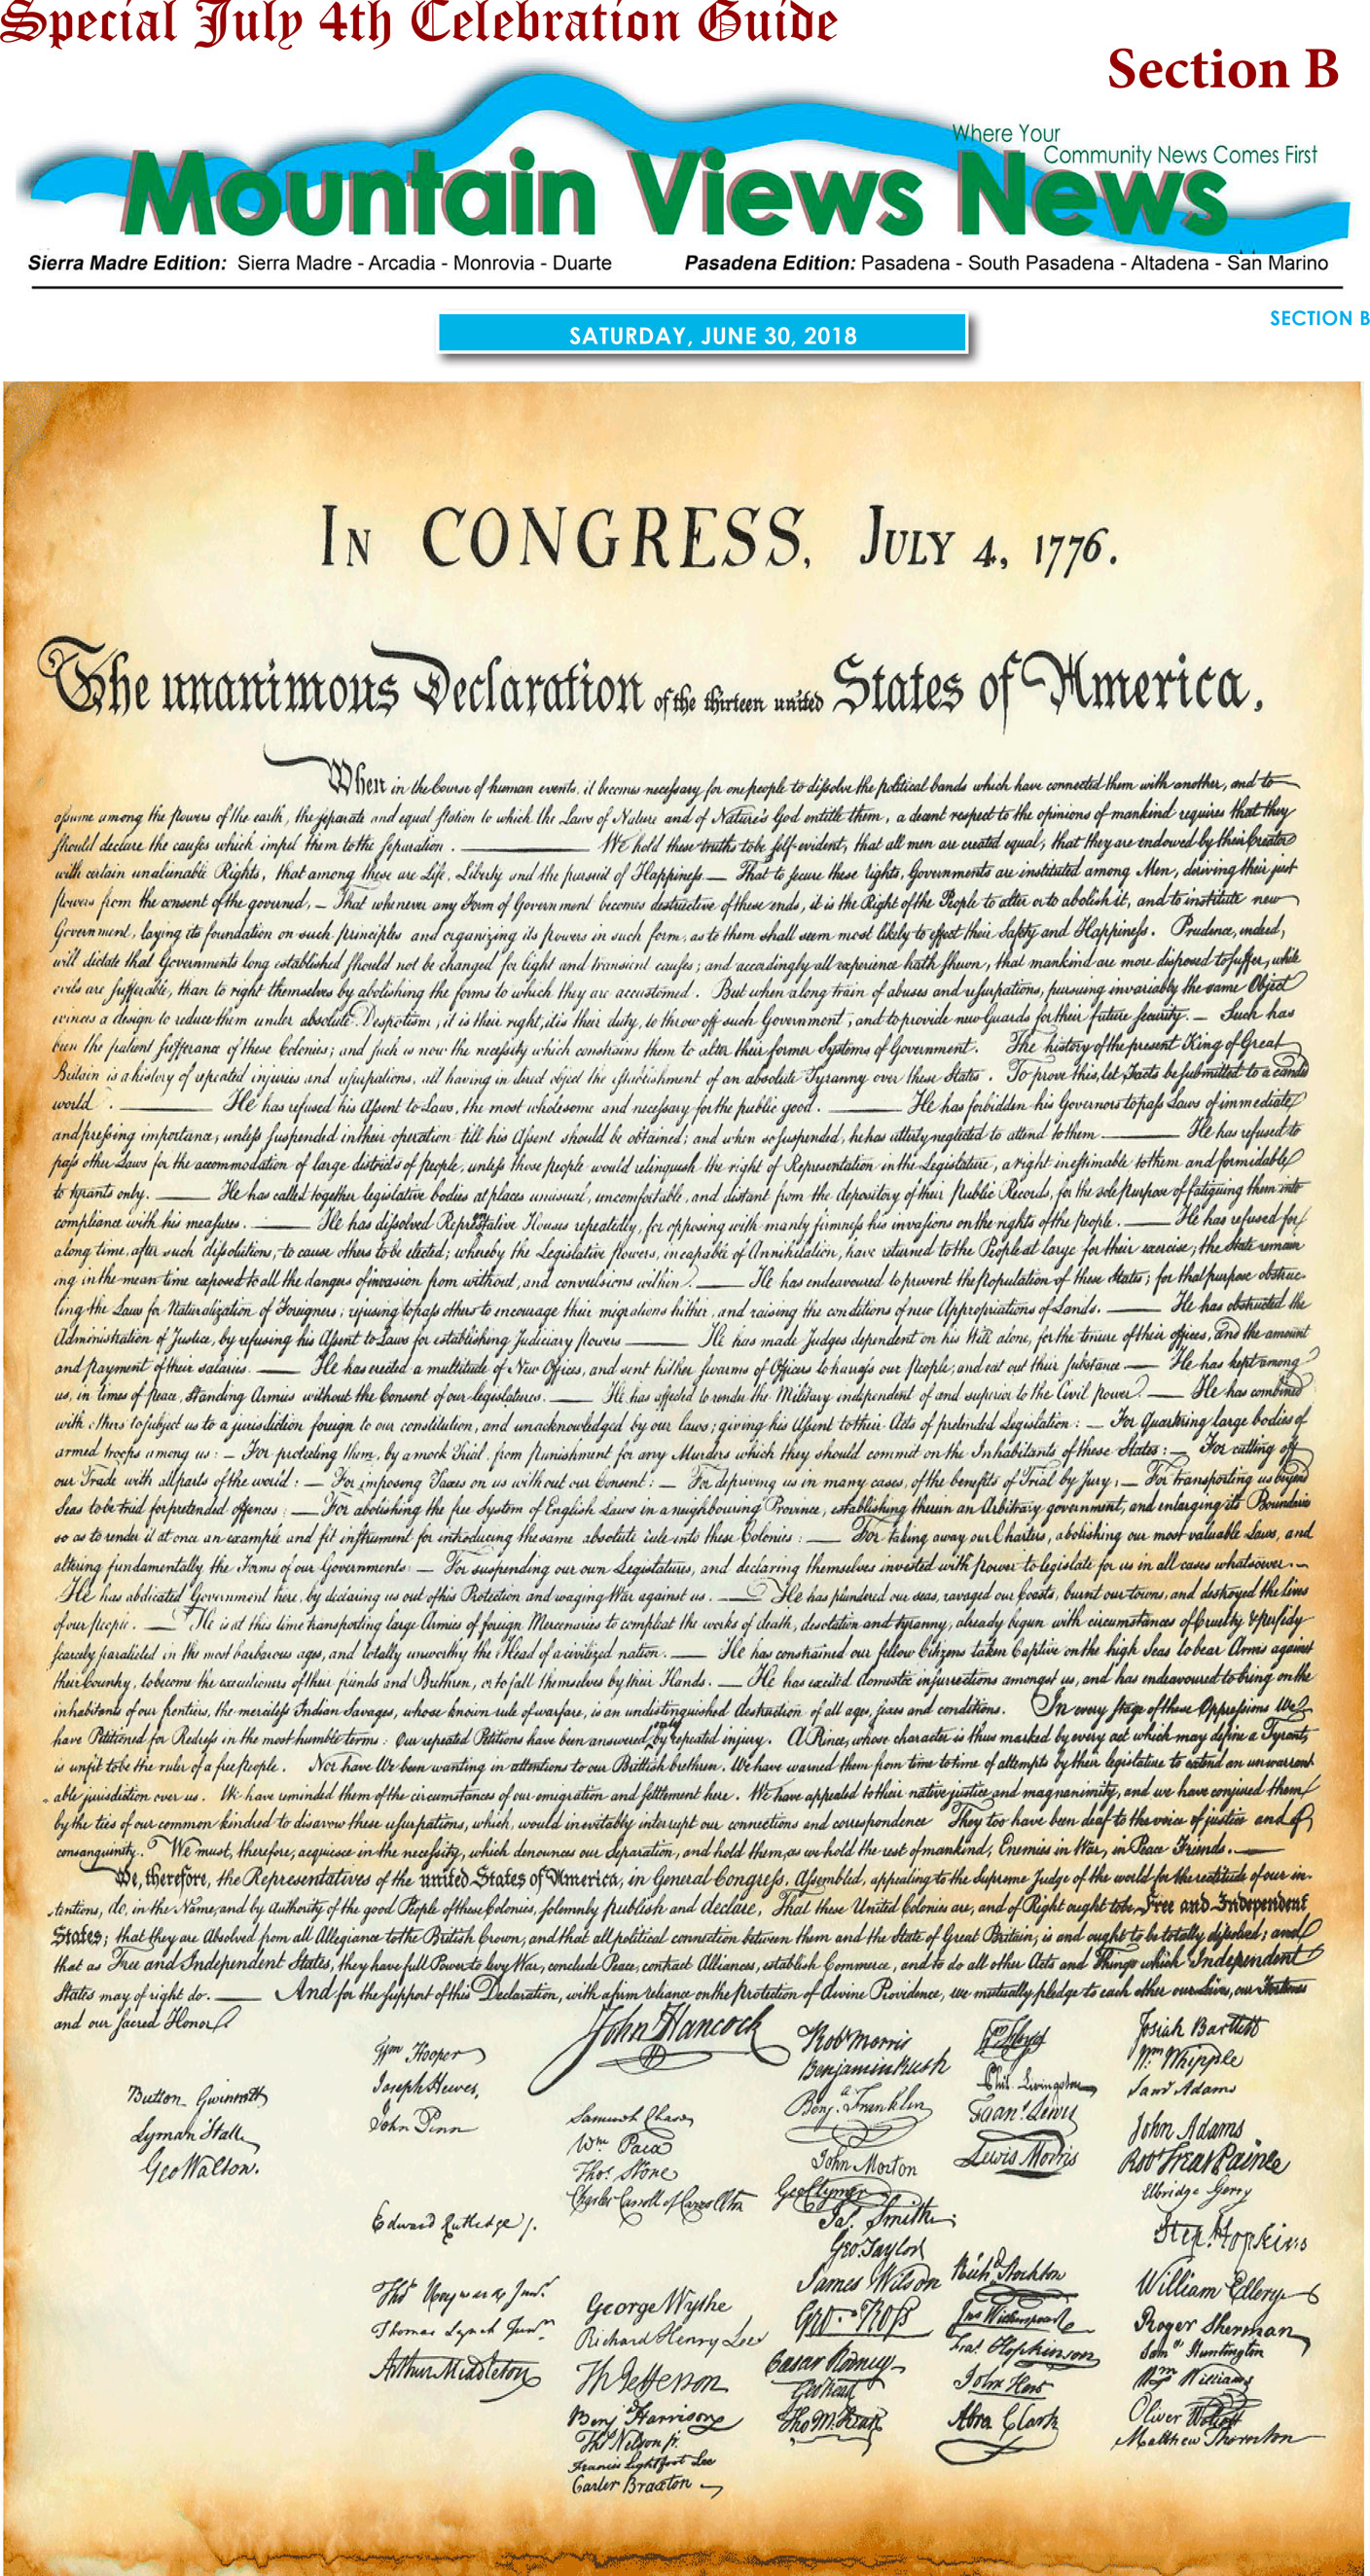 Special July 4th Celebration Guide
Section B
Where Your
Community News Comes First
Mountain Views News
Sierra Madre Edition: Sierra Madre - Arcadia - Monrovia - Duarte Pasadena Edition: Pasadena - South Pasadena - Altadena - San Marino
SATURDAY, JUNE 30, 2018
SECTION B
In CONGRESS, July 4, 1776.
The unanimous Declaration of the thirteen united States of America,
When in the Course of human events, it becomes necessary for one people to dissolve the political bands which have connected them with another, and to
assume among the powers of the earth, the separate and equal station to which the Laws of Nature and of Nature's God entitle them, a decent respect to the opinions of mankind requires that they
should declare the causes which impel them to the separation. — We hold these truths to be self-evident, that all men are created equal, that they are endowed by their Creator
with certain unalienable Rights, that among these are Life, Liberty and the pursuit of Happiness. — That to secure these rights, Governments are instituted among Men, deriving their just
powers from the consent of the governed, — That whenever any Form of Government becomes destructive of these ends, it is the Right of the People to alter or to abolish it, and to institute new
Government, laying its foundation on such principles and organizing its powers in such form, as to them shall seem most likely to effect their Safety and Happiness. Prudence, indeed,
will dictate that Governments long established should not be changed for light and transient causes; and accordingly all experience hath shewn, that mankind are more disposed to suffer, while
evils are sufferable, than to right themselves by abolishing the forms to which they are accustomed. But when a long train of abuses and usurpations, pursuing invariably the same Object
evinces a design to reduce them under absolute Despotism, it is their right, it is their duty, to throw off such Government, and to provide new Guards for their future security. — Such has
been the patient sufferance of these Colonies; and such is now the necessity which constrains them to alter their former Systems of Government. The history of the present King of Great
Britain is a history of repeated injuries and usurpations, all having in direct object the establishment of an absolute Tyranny over these States. To prove this, let Facts be submitted to a candid
world. — He has refused his Assent to Laws, the most wholesome and necessary for the public good. — He has forbidden his Governors to pass Laws of immediate
and pressing importance, unless suspended in their operation till his Assent should be obtained; and when so suspended, he has utterly neglected to attend to them. — He has refused to
pass other Laws for the accommodation of large districts of people, unless those people would relinquish the right of Representation in the Legislature, a right inestimable to them and formidable
to tyrants only. — He has called together legislative bodies at places unusual, uncomfortable, and distant from the depository of their Public Records, for the sole purpose of fatiguing them into
compliance with his measures. — He has dissolved Representative Houses repeatedly, for opposing with manly firmness his invasions on the rights of the people. — He has refused for
a long time, after such dissolutions, to cause others to be elected; whereby the Legislative powers, incapable of Annihilation, have returned to the People at large for their exercise; the State remain
ing in the mean time exposed to all the dangers of invasion from without, and convulsions within. — He has endeavoured to prevent the population of these States; for that purpose obstruc-
ting the Laws for Naturalization of Foreigners; refusing to pass others to encourage their migrations hither, and raising the conditions of new Appropriations of Lands. — He has obstructed the
Administration of Justice, by refusing his Assent to Laws for establishing Judiciary powers — He has made Judges dependent on his Will alone, for the tenure of their offices, and the amount
and payment of their salaries. — He has erected a multitude of New Offices, and sent hither swarms of Officers to harrass our people, and eat out their substance — He has kept among
us, in times of peace, Standing Armies without the Consent of our legislatures. — He has affected to render the Military independent of and superior to the Civil power. — He has combined
with others to subject us to a jurisdiction foreign to our constitution, and unacknowledged by our laws; giving his Assent to their Acts of pretended Legislation: — For Quartering large bodies of
armed troops among us: — For protecting them, by a mock Trial, from punishment for any Murders which they should commit on the Inhabitants of these States: — For cutting off
our Trade with all parts of the world: — For imposing Taxes on us without our Consent: — For depriving us in many cases, of the benefits of Trial by Jury: — For transporting us beyond
Seas to be tried for pretended offences: — For abolishing the free System of English Laws in a neighbouring Province, establishing therein an Arbitrary government, and enlarging its Boundaries
so as to render it at once an example and fit instrument for introducing the same absolute rule into these Colonies: — For taking away our Charters, abolishing our most valuable Laws, and
altering fundamentally the Forms of our Governments: — For suspending our own Legislatures, and declaring themselves invested with power to legislate for us in all cases whatsoever. —
He has abdicated Government here, by declaring us out of his Protection and waging War against us. — He has plundered our seas, ravaged our Coasts, burnt our towns, and destroyed the lives
of our people. — He is at this time transporting large Armies of foreign Mercenaries to compleat the works of death, desolation and tyranny, already begun with circumstances of Cruelty & perfidy
scarcely paralleled in the most barbarous ages, and totally unworthy the Head of a civilized nation. — He has constrained our fellow Citizens taken Captive on the high Seas to bear Arms against
their Country, to become the executioners of their friends and Brethren, or to fall themselves by their Hands. — He has excited domestic insurrections amongst us, and has endeavoured to bring on the
inhabitants of our frontiers, the merciless Indian Savages, whose known rule of warfare, is an undistinguished destruction of all ages, sexes and conditions. In every stage of these Oppressions We
have Petitioned for Redress in the most humble terms: Our repeated Petitions have been answered only by repeated injury. A Prince, whose character is thus marked by every act which may define a Tyrant,
is unfit to be the ruler of a free people. Nor have We been wanting in attentions to our Brittish brethren. We have warned them from time to time of attempts by their legislature to extend an unwarrant
able jurisdiction over us. We have reminded them of the circumstances of our emigration and settlement here. We have appealed to their native justice and magnanimity, and we have conjured them
by the ties of our common kindred to disavow these usurpations, which, would inevitably interrupt our connections and correspondence They too have been deaf to the voice of justice and of
consanguinity. We must, therefore, acquiesce in the necessity, which denounces our Separation, and hold them, as we hold the rest of mankind, Enemies in War, in Peace Friends. —
We, therefore, the Representatives of the united States of America, in General Congress, Assembled, appealing to the Supreme Judge of the world for the rectitude of our in-
tentions, do, in the Name, and by Authority of the good People of these Colonies, solemnly publish and declare, That these United Colonies are, and of Right ought to be Free and Independent
States; that they are Absolved from all Allegiance to the British Crown, and that all political connection between them and the State of Great Britain, is and ought to be totally dissolved; and
that as Free and Independent States, they have full Power to levy War, conclude Peace, contract Alliances, establish Commerce, and to do all other Acts and Things which Independent
States may of right do. — And for the support of this Declaration, with a firm reliance on the protection of divine Providence, we mutually pledge to each other our Lives, our Fortunes
and our sacred Honor.
Button Gwinnett
Lyman Hall
Geo Walton.
Wm Hooper
Joseph Hewes,
John Penn
Edward Rutledge /.
Thos Heyward Junr.
Thomas Lynch Junr.
Arthur Middleton
John Hancock
Samuel Chase
Wm. Paca
Thos. Stone
Charles Carroll of Carrollton
George Wythe
Richard Henry Lee
Th Jefferson
Benj Harrison
Thos Nelson jr.
Francis Lightfoot Lee
Carter Braxton
Robt Morris
Benjamin Rush
Benj. Franklin
John Morton
Geo Clymer
Jas. Smith
Geo. Taylor
James Wilson
Geo. Ross
Caesar Rodney
Geo Read
Tho M:Kean
Wm Floyd
Phil. Livingston
Frans. Lewis
Lewis Morris
Richd. Stockton
Jno Witherspoon
Fras. Hopkinson
John Hart
Abra Clark
Josiah Bartlett
Wm. Whipple
Saml Adams
John Adams
Robt Treat Paine
Elbridge Gerry
Step. Hopkins
William Ellery
Roger Sherman
Saml Huntington
Wm Williams
Oliver Wolcott
Matthew Thornton